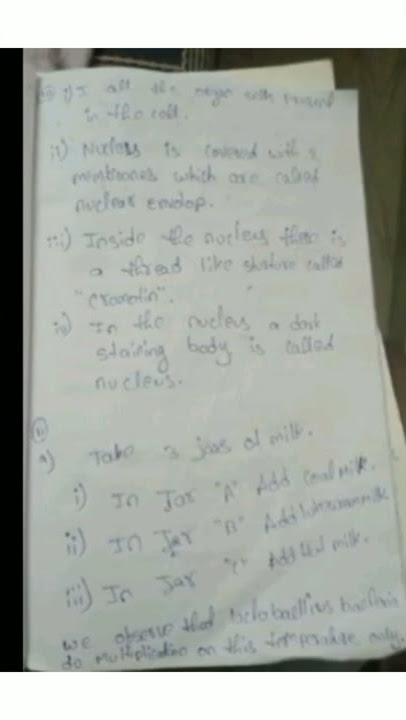 i) I all the organ cells present
in the cell.
ii) Nucleus is covered with 2
membranes which are called
nuclear envelop.
iii) Inside the nucleus there is
a thread like structure called
"cromotin".
iv) In the nucleus a dark
staining body is called
nucleus.
11
a) Take 3 jars of milk.
i) In Jar "A" Add cool milk.
ii) In Jar "B" Add lukewarm milk
iii) In Jar "C" Add milk.
we observe that lactobacillus bacteria
do multiplication on this temperature only.